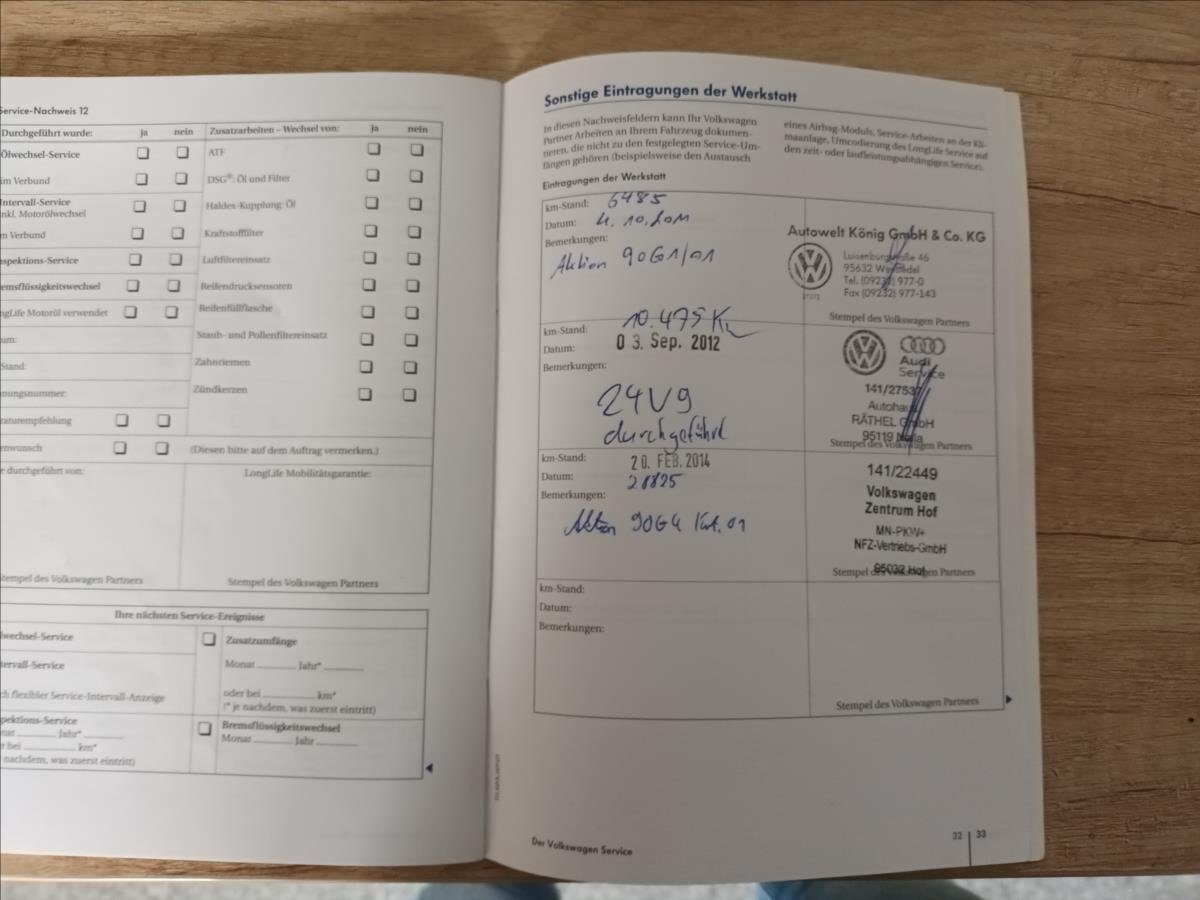 Service-Nachweis 12
Durchgeführt wurde: ja nein
Ölwechsel-Service
im Verbund
Intervall-Service
inkl. Motorölwechsel
im Verbund
spektions-Service
emsflüssigkeitswechsel
ngLife Motoröl verwendet
um:
Stand:
nungsnummer:
raturempfehlung
enwunsch
Zusatzarbeiten – Wechsel von: ja nein
ATF
DSG®: Öl und Filter
Haldex-Kupplung: Öl
Kraftstofffilter
Luftfiltereinsatz
Reifendrucksensoren
Reifenfüllflasche
Staub- und Pollenfiltereinsatz
Zahnriemen
Zündkerzen
(Diesen bitte auf dem Auftrag vermerken.)
e durchgeführt von:
LongLife Mobilitätsgarantie:
Stempel des Volkswagen Partners
Stempel des Volkswagen Partners
Ihre nächsten Service-Ereignisse
wechsel-Service
tervall-Service
ch flexibler Service-Intervall-Anzeige
pektions-Service
nat Jahr*
r bei km*
nachdem, was zuerst eintritt)
Zusatzumfänge
Monat Jahr*
oder bei km*
(* je nachdem, was zuerst eintritt)
Bremsflüssigkeitswechsel
Monat Jahr
Sonstige Eintragungen der Werkstatt
In diesen Nachweisfeldern kann Ihr Volkswagen
Partner Arbeiten an Ihrem Fahrzeug dokumen-
tieren, die nicht zu den festgelegten Service-Um-
fängen gehören (beispielsweise den Austausch
eines Airbag-Moduls, Service-Arbeiten an der Kli-
maanlage, Umcodierung des LongLife Service auf
den zeit- oder laufleistungsabhängigen Service).
Eintragungen der Werkstatt
km-Stand: 6485
Datum: 4.10.2011
Bemerkungen:
Aktion 90G1/01
Autowelt König GmbH & Co. KG
Luisenburgstraße 46
95632 Wunsiedel
Tel. (09232) 977-0
Fax (09232) 977-143
Stempel des Volkswagen Partners
km-Stand: 10.475 Km
Datum: 03. Sep. 2012
Bemerkungen:
24V9
durchgeführt
Audi
Service
141/27537
Autohaus
RÄTHEL GmbH
95119 Naila
Stempel des Volkswagen Partners
km-Stand: 20. FEB. 2014
Datum: 21825
Bemerkungen:
Aktion 90G4 Krit. 01
141/22449
Volkswagen
Zentrum Hof
MN-PKW+
NFZ-Vertriebs-GmbH
95032 Hof
Stempel des Volkswagen Partners
km-Stand:
Datum:
Bemerkungen:
Stempel des Volkswagen Partners
Der Volkswagen Service
32 33